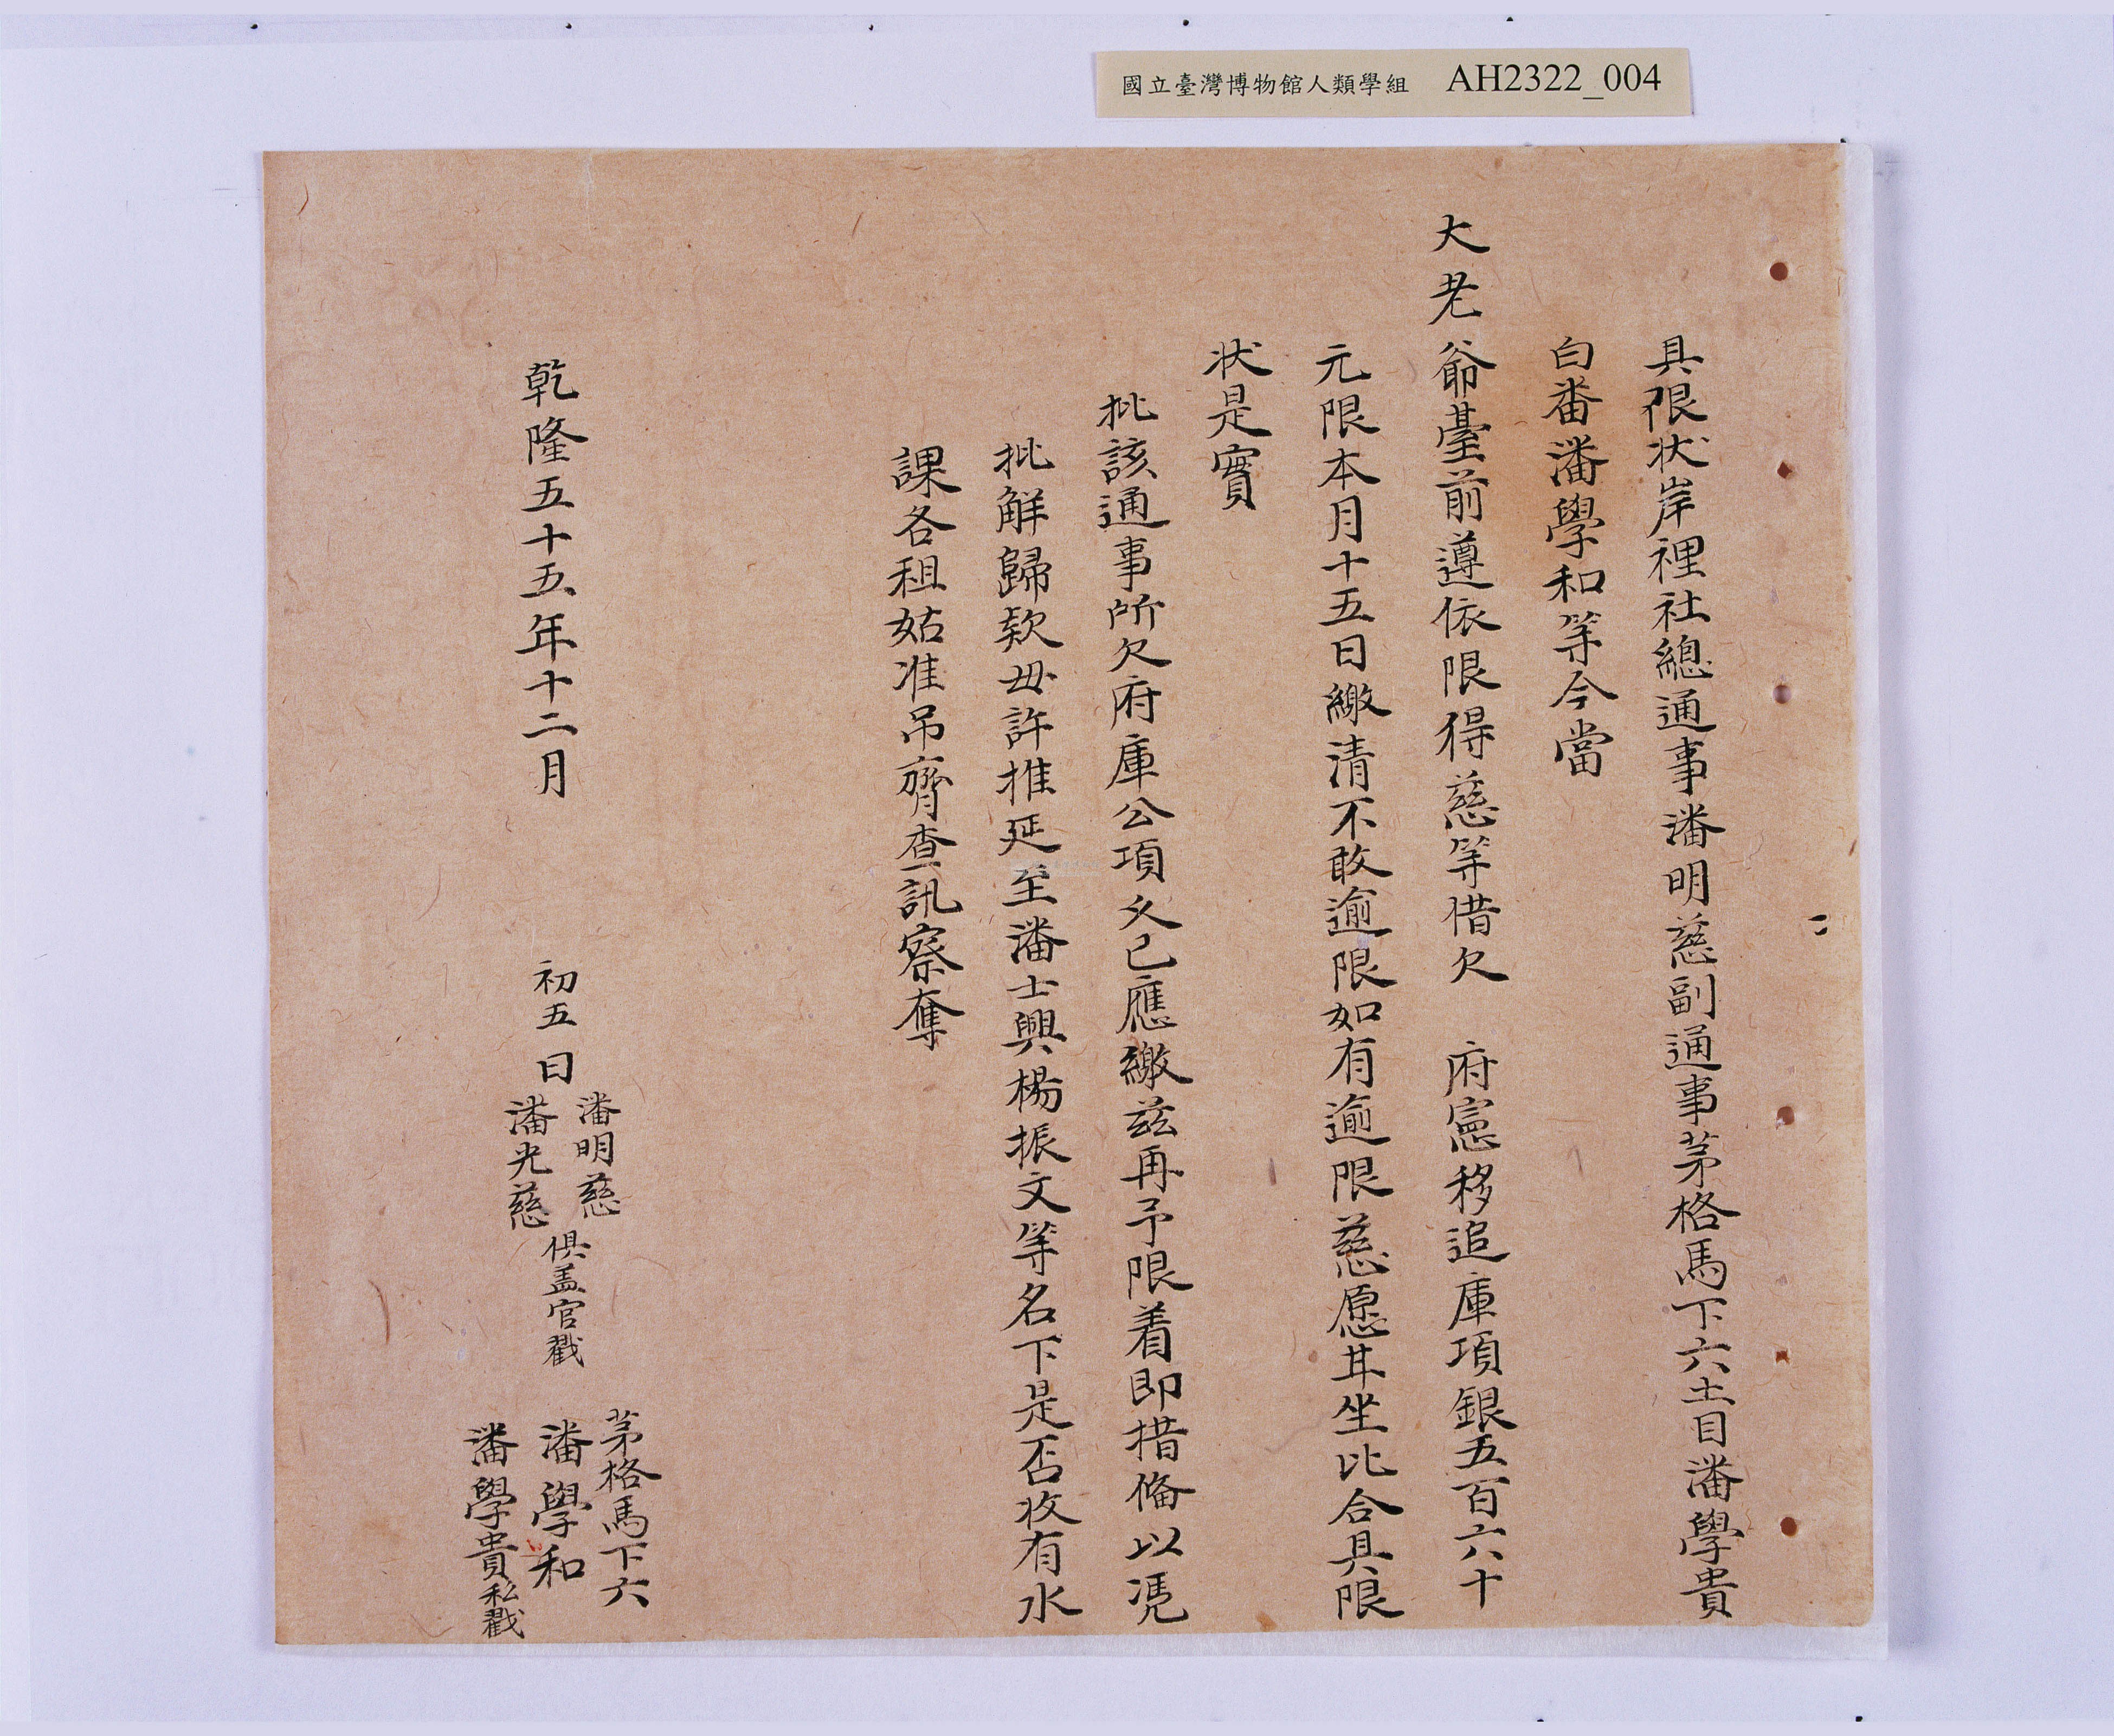 國立臺灣博物館人類學組 AH2322_004
具限状岸裡社總通事潘明慈副通事茅格馬下六土目潘學貴
白番潘學和等今當
大老爺臺前遵依限得慈等借欠 府憲移追庫項銀五百六十
元限本月十五日繳清不敢逾限如有逾限慈愿甘坐比合具限
状是實
批該通事所欠府庫公項久已應繳茲再予限着即措俻以凴
批觧歸欵毋許推延至潘士興楊振文等名下是否收有水
課各租姑准吊齊查訊察奪
乾隆五十五年十二月 初五日
潘明慈
潘光慈
俱盖官戳
茅格馬下六
潘學和
潘學貴私戳